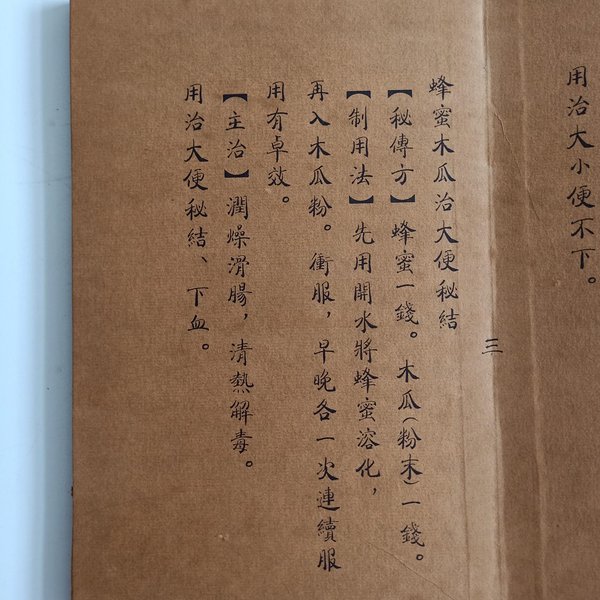 用治大小便不下。
三
蜂蜜木瓜治大便秘結
【秘傳方】蜂蜜一錢。木瓜(粉末)一錢。
【制用法】先用開水將蜂蜜溶化，
再入木瓜粉。衝服，早晚各一次連續服
用有卓效。
【主治】潤燥滑腸，清熱解毒。
用治大便秘結、下血。